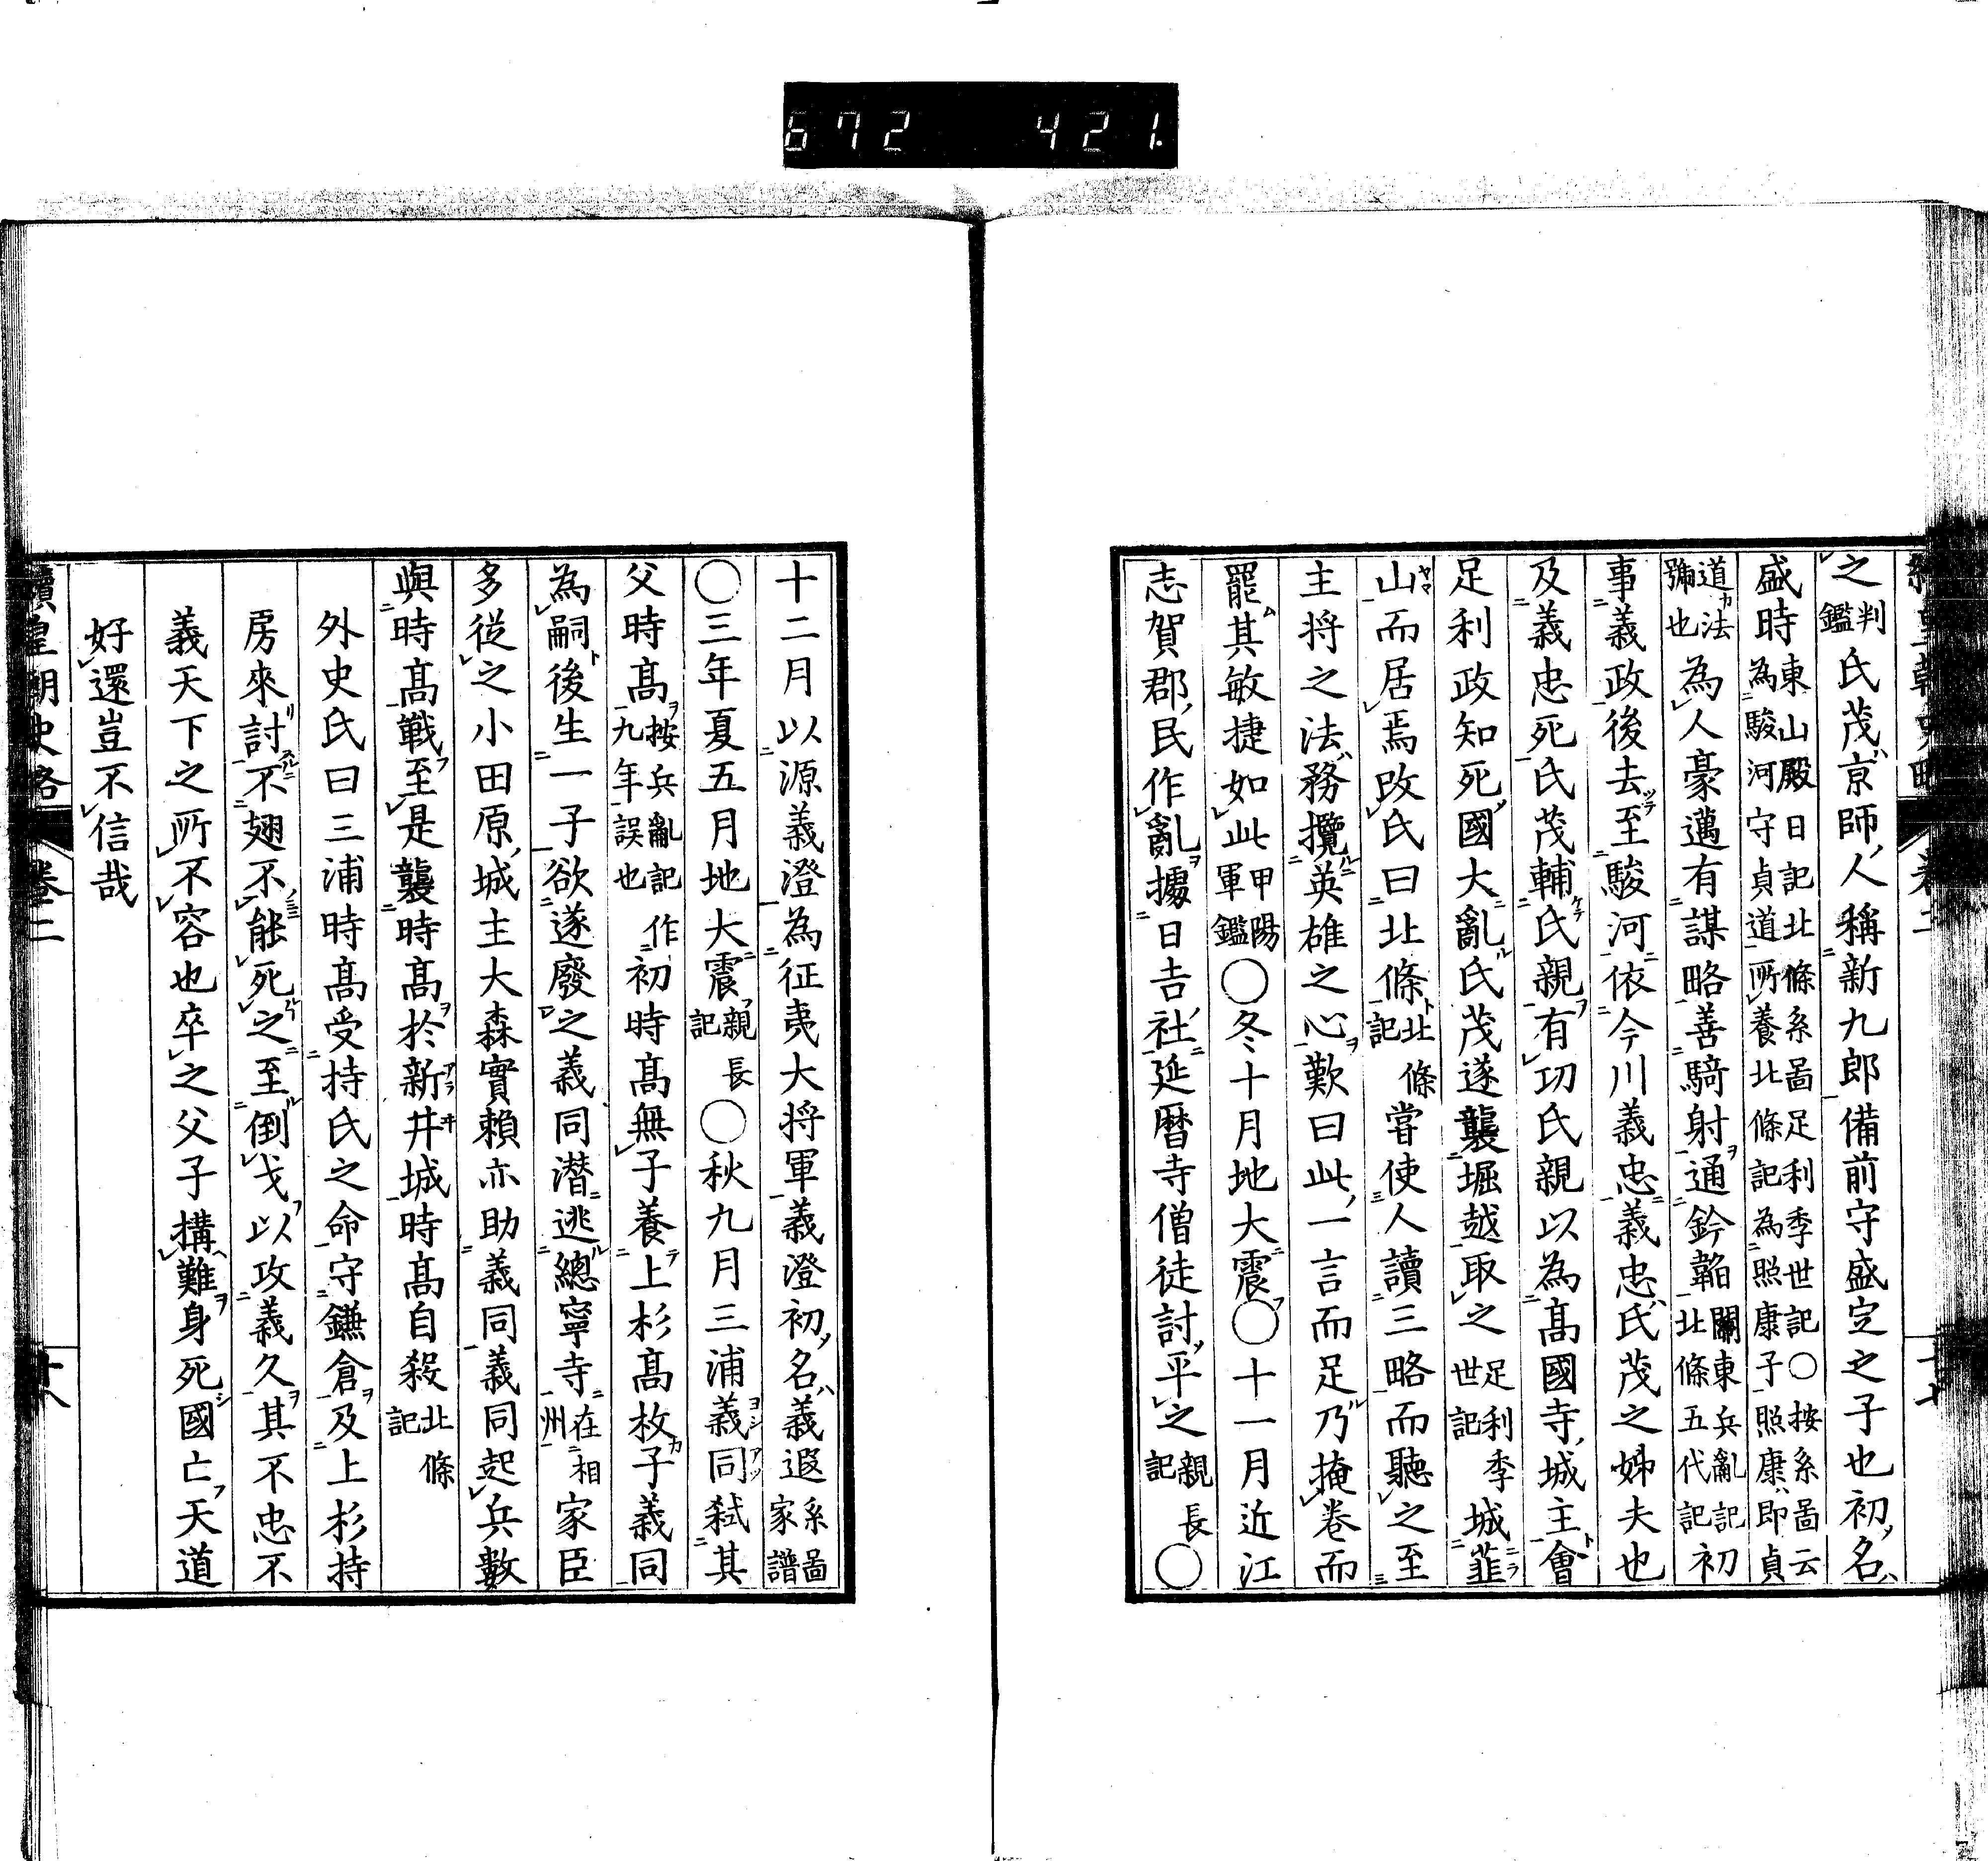 672 421.
之判鑑氏茂京師人稱新九郎備前守盛定之子也初名
盛時東山殿日記北條系圖足利季世記〇按系圖云為駿河守貞道所養北條記為照康子照康即貞
道法號也為人豪邁有謀略善騎射通鈐韜關東兵亂記北條五代記初
事義政後去至駿河依今川義忠義忠氏茂之姊夫也
及義忠死氏茂輔氏親有功氏親以為高國寺城主會
足利政知死國大亂氏茂遂襲堀越取之足利季世記城韮
山而居焉改氏曰北條北條記嘗使人讀三略而聽之至
主将之法務攬英雄之心歎曰此一言而足乃掩卷而
罷其敏捷如此甲陽軍鑑〇冬十月地大震〇十一月近江
志賀郡民作亂據日吉社延暦寺僧徒討平之親長記〇
十二月以源義澄為征夷大将軍義澄初名義遐系圖家譜
〇三年夏五月地大震親長記〇秋九月三浦義同弑其
父時髙按兵亂記作九年誤也初時髙無子養上杉髙救子義同
為嗣後生一子欲遂廢之義同潜逃總寧寺在相州家臣
多從之小田原城主大森實頼亦助義同義同起兵數
與時髙戰至是襲時髙於新井城時髙自殺北條記
外史氏曰三浦時髙受持氏之命守鎌倉及上杉持
房來討不翅不能死之至倒戈以攻義久其不忠不
義天下之所不容也卒之父子搆難身死國亡天道
好還豈不信哉
續皇朝史略 卷二